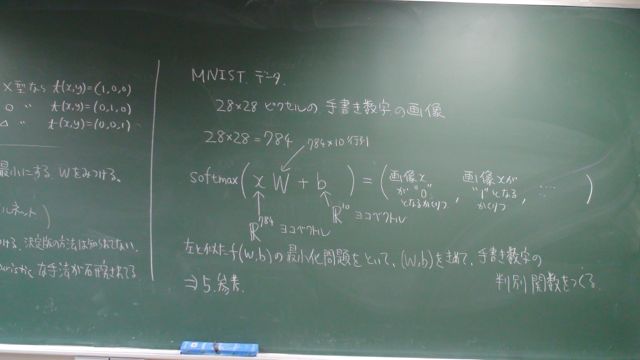 ×型なら t(x,y)=(1,0,0)
○ 〃 t(x,y)=(0,1,0)
△ 〃 t(x,y)=(0,0,1)
最小にする Wをみつける。
ルネット)
ける、決定版の方法は知られてない。
な手法が
MNIST データ.
28×28 ピクセルの 手書き数字の画像
28×28=784
784×10行列
softmax(xW+b)=(画像xが"0"となるかくりつ, 画像xが"1"となるかくりつ, ……)
R^784 ヨコベクトル
R^10 ヨコベクトル
左と似た f(W,b)の最小化問題をといて、(W,b)を求めて、手書き数字の
判別関数をつくる.
⇒ 5.参考.